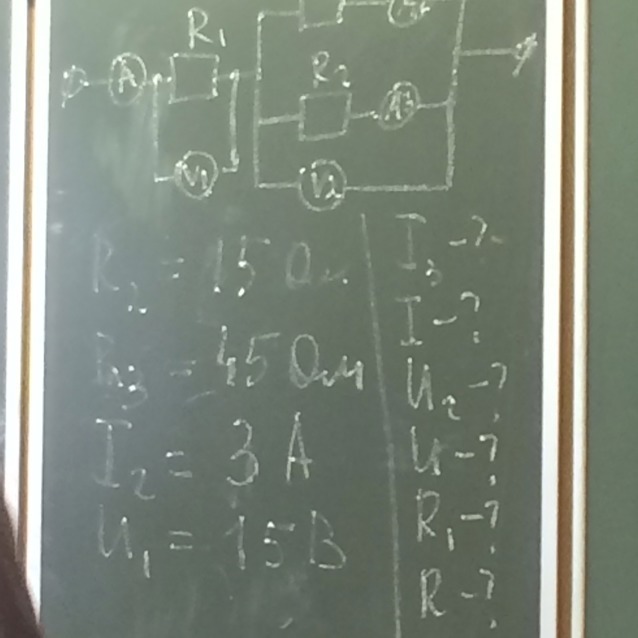 R₁
A
R₂
A₃
V₁
V₂
R₂ = 15 Ом
R₃ = 45 Ом
I₂ = 3 А
U₁ = 15 В
I₃ - ?
I - ?
U₂ - ?
U - ?
R₁ - ?
R - ?